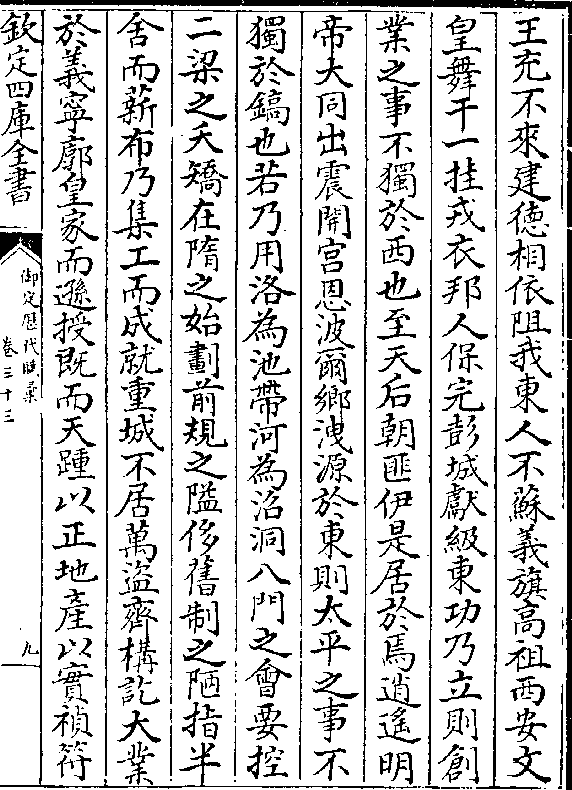 王充不來建德相依阻我東人不蘇義旗高祖西安文
皇舞干一挂戎衣邦人保完彭城獻級東功乃立則創
業之事不獨於西也至天后朝匪伊是居於焉逍遙明
帝大同出震開宫恩波爾鄉洩源於東則太平之事不
獨於鎬也若乃用洛為池帶河為沼洞八門之會要控
二梁之夭矯在隋之始劃前規之隘侈舊制之陋指半
舍而薪布乃集工而成就重城不居萬盜齊構訖大業
於義寧廓皇家而遜授既而天踵以正地產以實禎符
欽定四庫全書
御定歷代賦彙
卷三十三
九